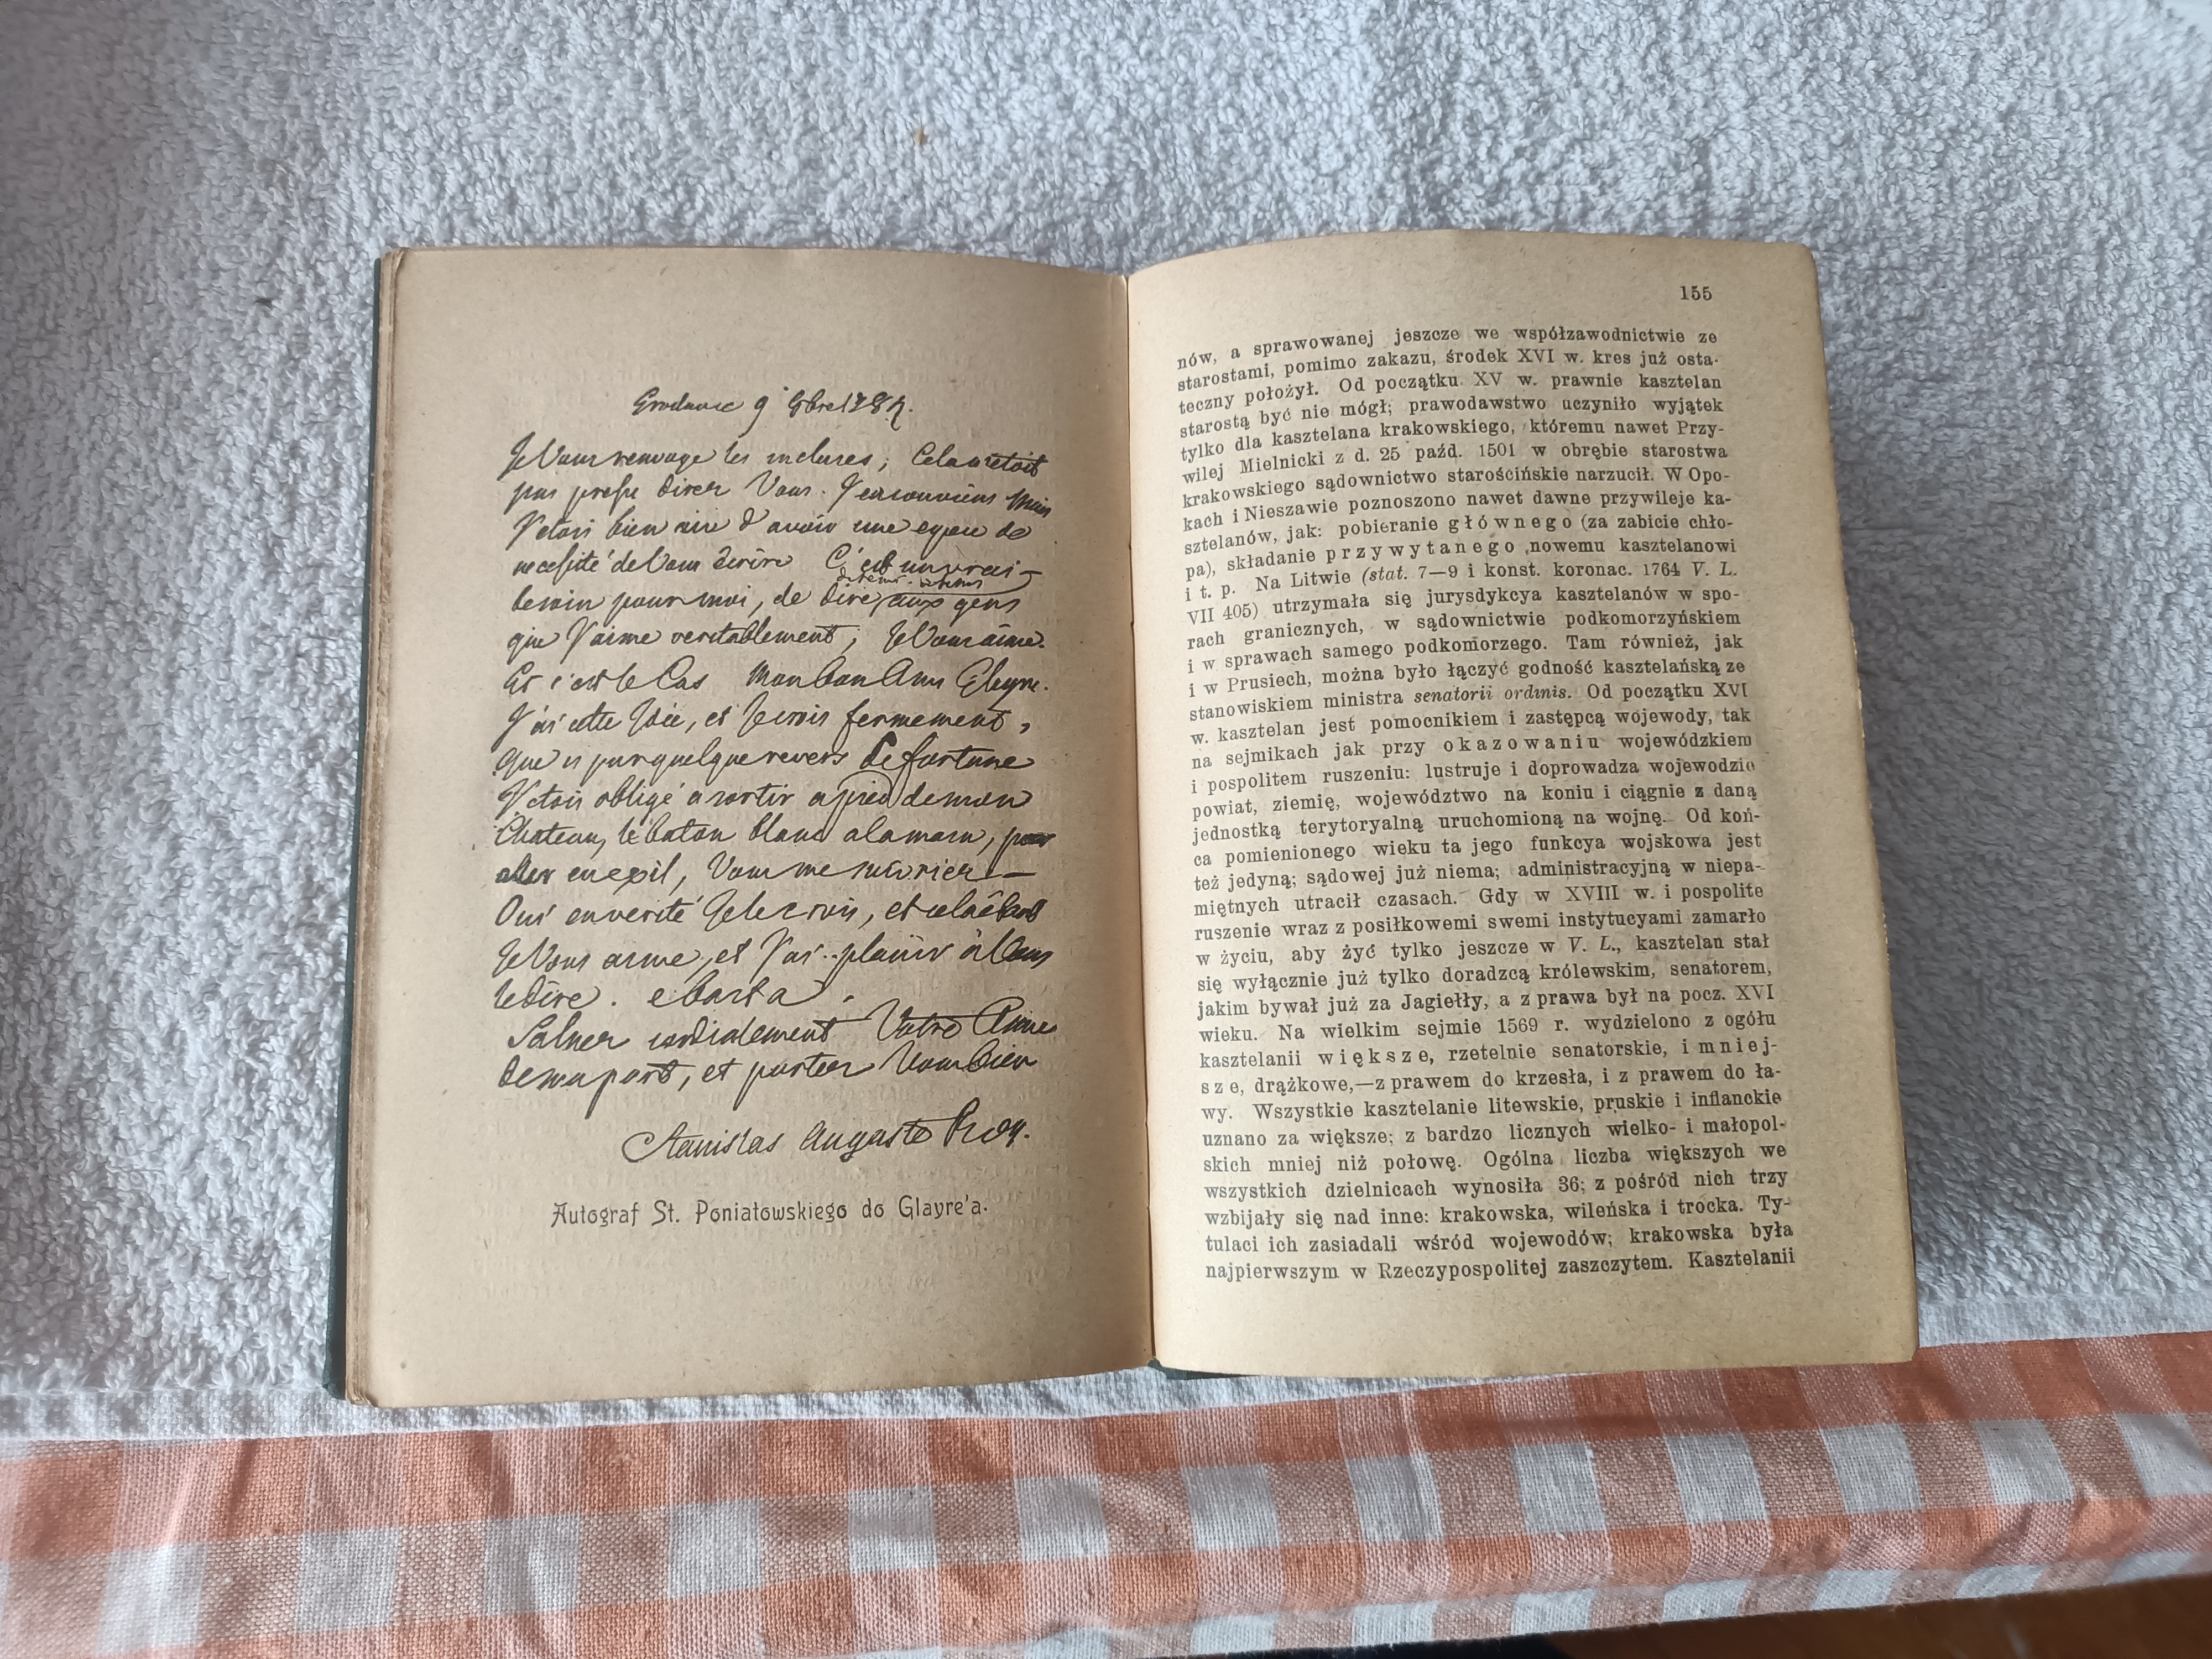 Grodno 9
Je Vous renvoye les incluses; Cela n'etoit
pas
J'etois bien aise d'avoir une espece de
necessité de Vous écrire C'est un vrai
besoin pour moi, de dire aux gens
que J'aime veritablement, Je Vous aime.
Et c'est le Cas Mon bon Ami Glayre.
J'ai cette Idée, et Je crois fermement,
que si par quelque revers de fortune
J'etois obligé a sortir a pied de mon
Chateau, le baton blanc a la main, pour
aller en exil, Vous me suivriez —
Oui en verité Je le crois, et cela
Je Vous aime, et J'ai plaisir à Vous
le dire. e basta.
Saluez cordialement Votre
de ma part, et portez Vous bien
Stanislas Auguste Roy.
Autograf St. Poniatowskiego do Glayre'a.
155
nów, a sprawowanej jeszcze we współzawodnictwie ze
starostami, pomimo zakazu, środek XVI w. kres już osta-
teczny położył. Od początku XV w. prawnie kasztelan
starostą być nie mógł; prawodawstwo uczyniło wyjątek
tylko dla kasztelana krakowskiego, któremu nawet Przy-
wilej Mielnicki z d. 25 paźd. 1501 w obrębie starostwa
krakowskiego sądownictwo starościńskie narzucił. W Opo-
kach i Nieszawie poznoszono nawet dawne przywileje ka-
sztelanów, jak: pobieranie głównego (za zabicie chło-
pa), składanie przywytanego nowemu kasztelanowi
i t. p. Na Litwie (stat. 7—9 i konst. koronac. 1764 V. L.
VII 405) utrzymała się jurysdykcya kasztelanów w spo-
rach granicznych, w sądownictwie podkomorzyńskiem
i w sprawach samego podkomorzego. Tam również, jak
i w Prusiech, można było łączyć godność kasztelańską ze
stanowiskiem ministra senatorii ordinis. Od początku XVI
w. kasztelan jest pomocnikiem i zastępcą wojewody, tak
na sejmikach jak przy okazowaniu wojewódzkiem
i pospolitem ruszeniu: lustruje i doprowadza wojewodzie
powiat, ziemię, województwo na koniu i ciągnie z daną
jednostką terytoryalną uruchomioną na wojnę. Od koń-
ca pomienionego wieku ta jego funkcya wojskowa jest
też jedyną; sądowej już niema; administracyjną w niepa-
miętnych utracił czasach. Gdy w XVIII w. i pospolite
ruszenie wraz z posiłkowemi swemi instytucyami zamarło
w życiu, aby żyć tylko jeszcze w V. L., kasztelan stał
się wyłącznie już tylko doradzcą królewskim, senatorem,
jakim bywał już za Jagiełły, a z prawa był na pocz. XVI
wieku. Na wielkim sejmie 1569 r. wydzielono z ogółu
kasztelanii większe, rzetelnie senatorskie, i mniej-
sze, drążkowe,—z prawem do krzesła, i z prawem do ła-
wy. Wszystkie kasztelanie litewskie, pruskie i inflanckie
uznano za większe; z bardzo licznych wielko- i małopol-
skich mniej niż połowę. Ogólna liczba większych we
wszystkich dzielnicach wynosiła 36; z pośród nich trzy
wzbijały się nad inne: krakowska, wileńska i trocka. Ty-
tulaci ich zasiadali wśród wojewodów; krakowska była
najpierwszym w Rzeczypospolitej zaszczytem. Kasztelanii